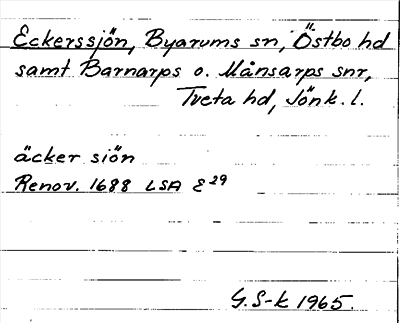 Eckerssjön, Byarums sn, Östbo hd
samt Barnarps o. Månsarps snr,
Tveta hd, Jönk. l.
äcker siön
Renov. 1688 LSA E 29
G.S-k 1965.